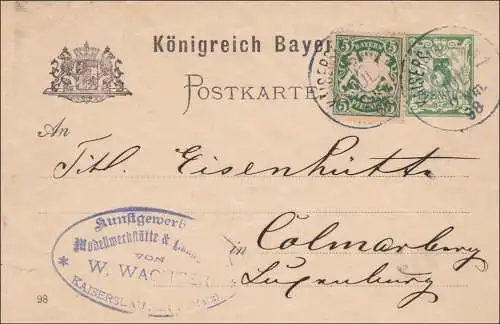 Königreich Bayer
POSTKARTE
BAYERN
5 5
PFENNIG
KAISERS
98
An
Titl. Eisenhütte
in Colmarberg
Luxemburg
Kunstgewerb
Modellwerkstätte &
VON
W. WAG
KAISERSLAU
98